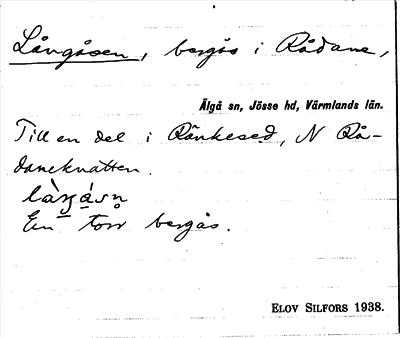 Långåsen, bergås i Rådane,
Älgå sn, Jösse hd, Värmlands län.
Till en del i Ränkesed, N Rå-
daneknatten.
làŋåsn̥
En torr bergås.
ELOV SILFORS 1938.